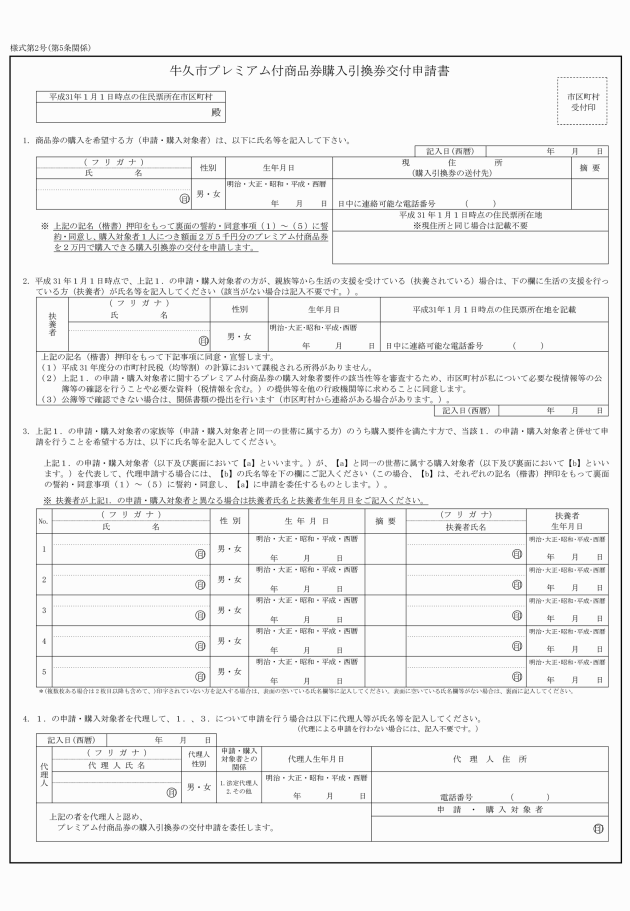 様式第2号(第5条関係)
牛久市プレミアム付商品券購入引換券交付申請書
平成31年1月1日時点の住民票所在市区町村
殿
市区町村
受付印
1. 商品券の購入を希望する方（申請・購入対象者）は、以下に氏名等を記入して下さい。
記入日(西暦) 年 月 日
(フリガナ)
氏 名
性別
生年月日
現 住 所
(購入引換券の送付先)
摘 要
印
男・女
明治・大正・昭和・平成・西暦
年 月 日
日中に連絡可能な電話番号 ( )
平成 31 年 1 月 1 日時点の住民票所在地
※現住所と同じ場合は記載不要
※ 上記の記名（楷書）押印をもって裏面の誓約・同意事項（1）～（5）に誓
約・同意し、購入対象者1人につき額面2万5千円分のプレミアム付商品券
を2万円で購入できる購入引換券の交付を申請します。
2. 平成 31 年 1 月 1 日時点で、上記1．の申請・購入対象者の方が、親族等から生活の支援を受けている（扶養されている）場合は、下の欄に生活の支援を行っ
ている方（扶養者）が氏名等を記入してください（該当がない場合は記入不要です。）。
扶養者
(フリガナ)
氏 名
性別
生年月日
平成31年1月1日時点の住民票所在地を記載
印
男・女
明治・大正・昭和・平成・西暦
年 月 日
日中に連絡可能な電話番号 ( )
上記の記名（楷書）押印をもって下記事項に同意・宣誓します。
（1）平成 31 年度分の市町村民税（均等割）の計算において課税される所得がありません。
（2）上記1．の申請・購入対象者に関するプレミアム付商品券の購入対象者要件の該当性等を審査するため、市区町村が私について必要な税情報等の公
簿等の確認を行うことや必要な資料（税情報を含む。）の提供等を他の行政機関等に求めることに同意します。
（3）公簿等で確認できない場合は、関係書類の提出を行います（市区町村から連絡がある場合があります。）。
記入日(西暦) 年 月 日
3. 上記1．の申請・購入対象者の家族等（申請・購入対象者と同一の世帯に属する方）のうち購入要件を満たす方で、当該1．の申請・購入対象者と併せて申
請を行うことを希望する方は、以下に氏名等を記入してください。
上記1．の申請・購入対象者（以下及び裏面において【a】といいます。）が、【a】と同一の世帯に属する購入対象者（以下及び裏面において【b】といい
ます。）を代表して、代理申請する場合には、【b】の氏名等を下の欄にご記入ください（この場合、【b】は、それぞれの記名（楷書）押印をもって裏面
の誓約・同意事項（1）～（5）に誓約・同意し、【a】に申請を委任するものとします。）。
※ 扶養者が上記1．の申請・購入対象者と異なる場合は扶養者氏名と扶養者生年月日をご記入ください。
No.
(フリガナ)
氏 名
性 別
生 年 月 日
摘 要
(フリガナ)
扶養者氏名
扶養者
生年月日
1 印 男・女 明治・大正・昭和・平成・西暦 年 月 日 印 明治・大正・昭和・平成・西暦 年 月 日
2 印 男・女 明治・大正・昭和・平成・西暦 年 月 日 印 明治・大正・昭和・平成・西暦 年 月 日
3 印 男・女 明治・大正・昭和・平成・西暦 年 月 日 印 明治・大正・昭和・平成・西暦 年 月 日
4 印 男・女 明治・大正・昭和・平成・西暦 年 月 日 印 明治・大正・昭和・平成・西暦 年 月 日
5 印 男・女 明治・大正・昭和・平成・西暦 年 月 日 印 明治・大正・昭和・平成・西暦 年 月 日
*（複数枚ある場合は2枚目以降も含めて、）印字されていない方を記入する場合は、表面の空いている氏名欄等に記入してください。表面に空いている氏名欄等がない場合は、裏面に記入してください。
4. 1．の申請・購入対象者を代理して、1．、3．について申請を行う場合は以下に代理人等が氏名等を記入してください。
(代理による申請を行わない場合には、記入不要です。)
記入日(西暦) 年 月 日
代理人
(フリガナ)
代 理 人 氏 名
代理人
性別
申請・購入
対象者との
関係
代理人生年月日
代 理 人 住 所
印
男・女
1. 法定代理人
2. その他
明治・大正・昭和・平成・西暦
年 月 日
電話番号 ( )
上記の者を代理人と認め、
プレミアム付商品券の購入引換券の交付申請を委任します。
申 請 ・ 購 入 対 象 者
印